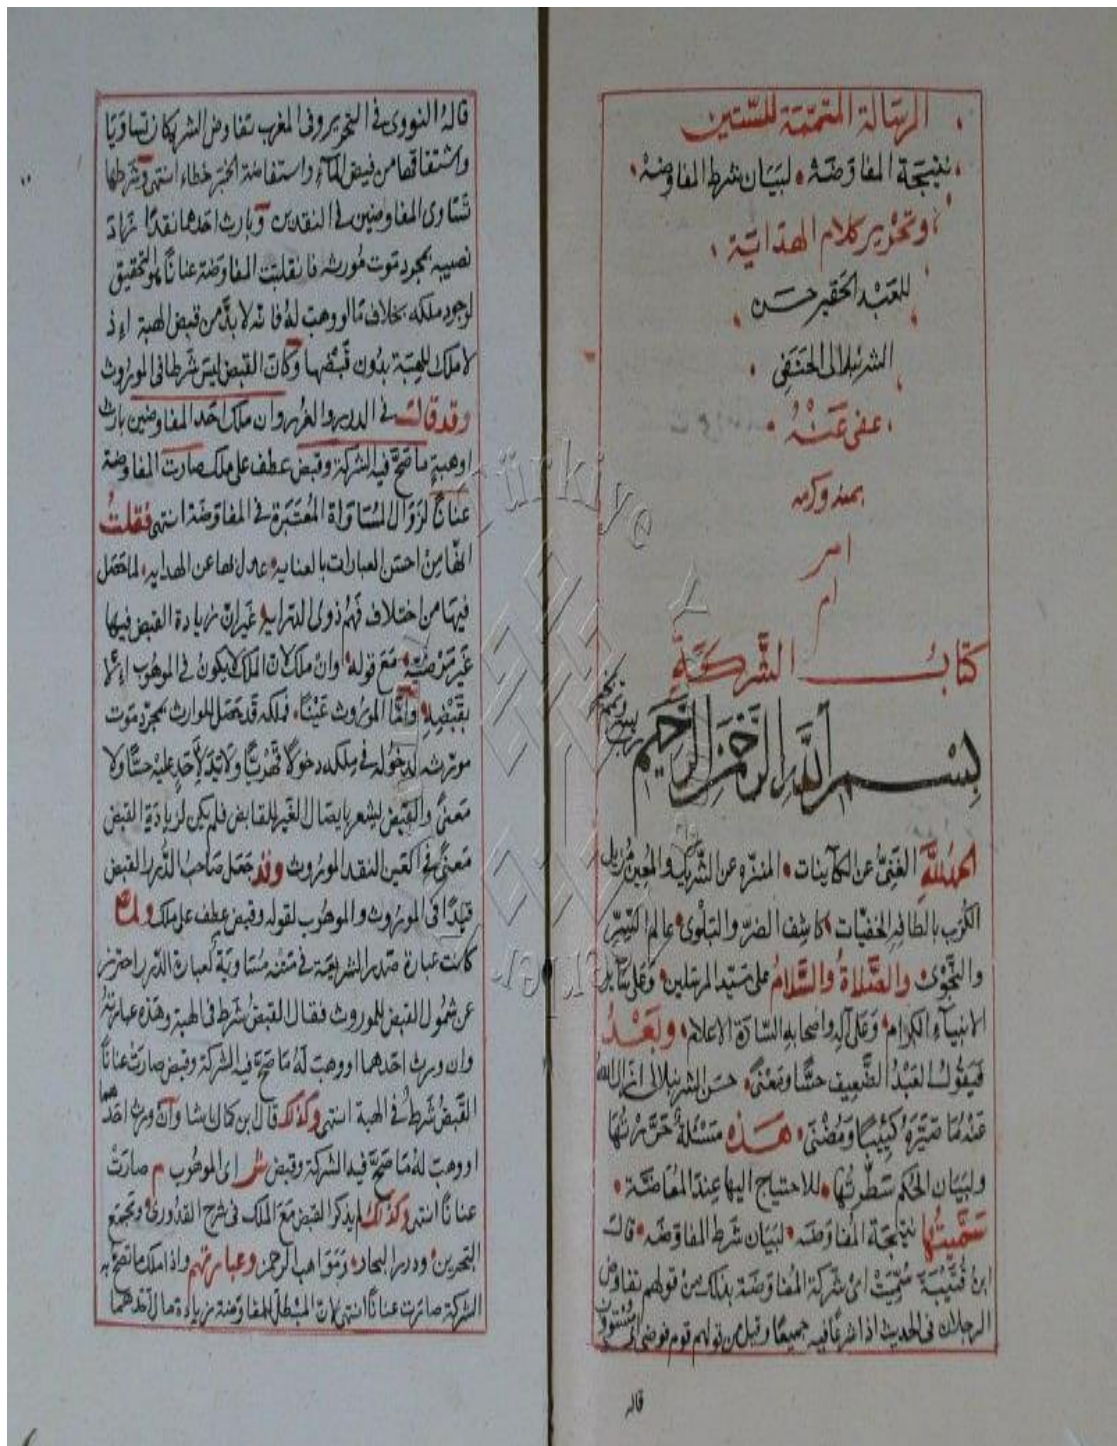 الرسالة المتممة للستين
نتيجة المفاوضة لبيان شرط المفاوضة
وتحرير كلام الهداية
للعبد الحقير حسن
الشرنبلالي الحنفي
عفى عنه
بمنه وكرمه
امر
ام
كتاب الشركة
بسم الله الرحمن الرحيم
الحمد لله الغنى عن الكآينات المنزه عن الشريك والمعين مزيل
الكرب بالطافه الخفيات كاشف الضر والبلوى عالم السر
والنجوى والصلاة والسلام على سيد المرسلين وعلى سائر
الانبيآء الكرام وعلى آله واصحابه السادة الاعلام وبعد
فيقول العبد الضعيف حسا ومعنى حسن الشرنبلالى ازال الله
عنه ما صيره كئيبا ومضنى هذه مسئلة حررتها
ولبيان الحكم سطرتها للاحتياج اليها عند المفاوضة
سميتها نتيجة المفاوضه لبيان شرط المفاوضه قالت
ابن قتيبة سميت اى شركة المفاوضة بذلك من قولهم تفاوض
الرجلان فى الحديث اذا شرعا فيه جميعا وقيل من قولهم قوم فوضى اى مستوون
قاله
قاله النووى فى التحرير وفى المغرب تفاوض الشريكان تساويا
واشتقاقها من فيض المآء واستفاضة الخبر خطاء انتهى وشرطها
تساوى المفاوضين فى النقدين وبارث احدهما نقدا زاد
نصيبه بمجرد موت مورثه فانقلبت المفاوضة عنانا بالتحقيق
لوجود ملكه بخلاف ما لو وهب له فانه لا بد من قبض الهبة اذ
لا ملك للهبة بدون قبضها وكان القبض ليس شرطا فى الموروث
وقد قالت فى الدرر والغرر وان ملك احد المفاوضين بارث
او هبة ما تصح فيه الشركة وقبض عطف على ملك صارت المفاوضة
عنانا لزوال المساواة المعتبرة فى المفاوضة انتهى فقلت
انها من احسن العبارات بالعنايه عدل بها عن الهدايه لما حصل
فيها من اختلاف فهم ذوى الدرايه غير ان زيادة القبض فيها
غير مرضية مع قوله وان ملك لان الملك لا يكون فى الموهوب الا
بقبضه واما الموروث عينا فملكه قد حصل للوارث بمجرد موت
مورثه لدخوله فى ملكه دخولا قهريا ولا يد لاحد عليه حسا ولا
معنى والقبض يشعر بايصال الغير للقابض فلم يكن لزيادة القبض
معنى فى العين النقد الموروث وقد جعل صاحب الدرر القبض
قيدا فى الموروث والموهوب لقوله وقبض عطف على ملك ولما
كانت عبارة صدر الشريعة فى متنه مساوية لعبارة الدرر احترز
عن شمول القبض للموروث فقال القبض شرط فى الهبة وهذه عبارته
وان ورث احدهما او وهب له ما تصح فيه الشركة وقبض صارت عنانا
القبض شرط فى الهبة انتهى وكذلك قال ابن كمال باشا وان ورث احدهما
او وهب له ما تصح فيه الشركة وقبض ش اى الموهوب م صارت
عنانا انتهى وكذلك لم يذكر القبض مع الملك فى شرح القدورى ومجمع
البحرين ودرر البحار ومواهب الرحمن وعبارتهم واذا ملك ما تصح به
الشركة صارت عنانا انتهى لان المبطل للمفاوضة زيادة مال احدهما